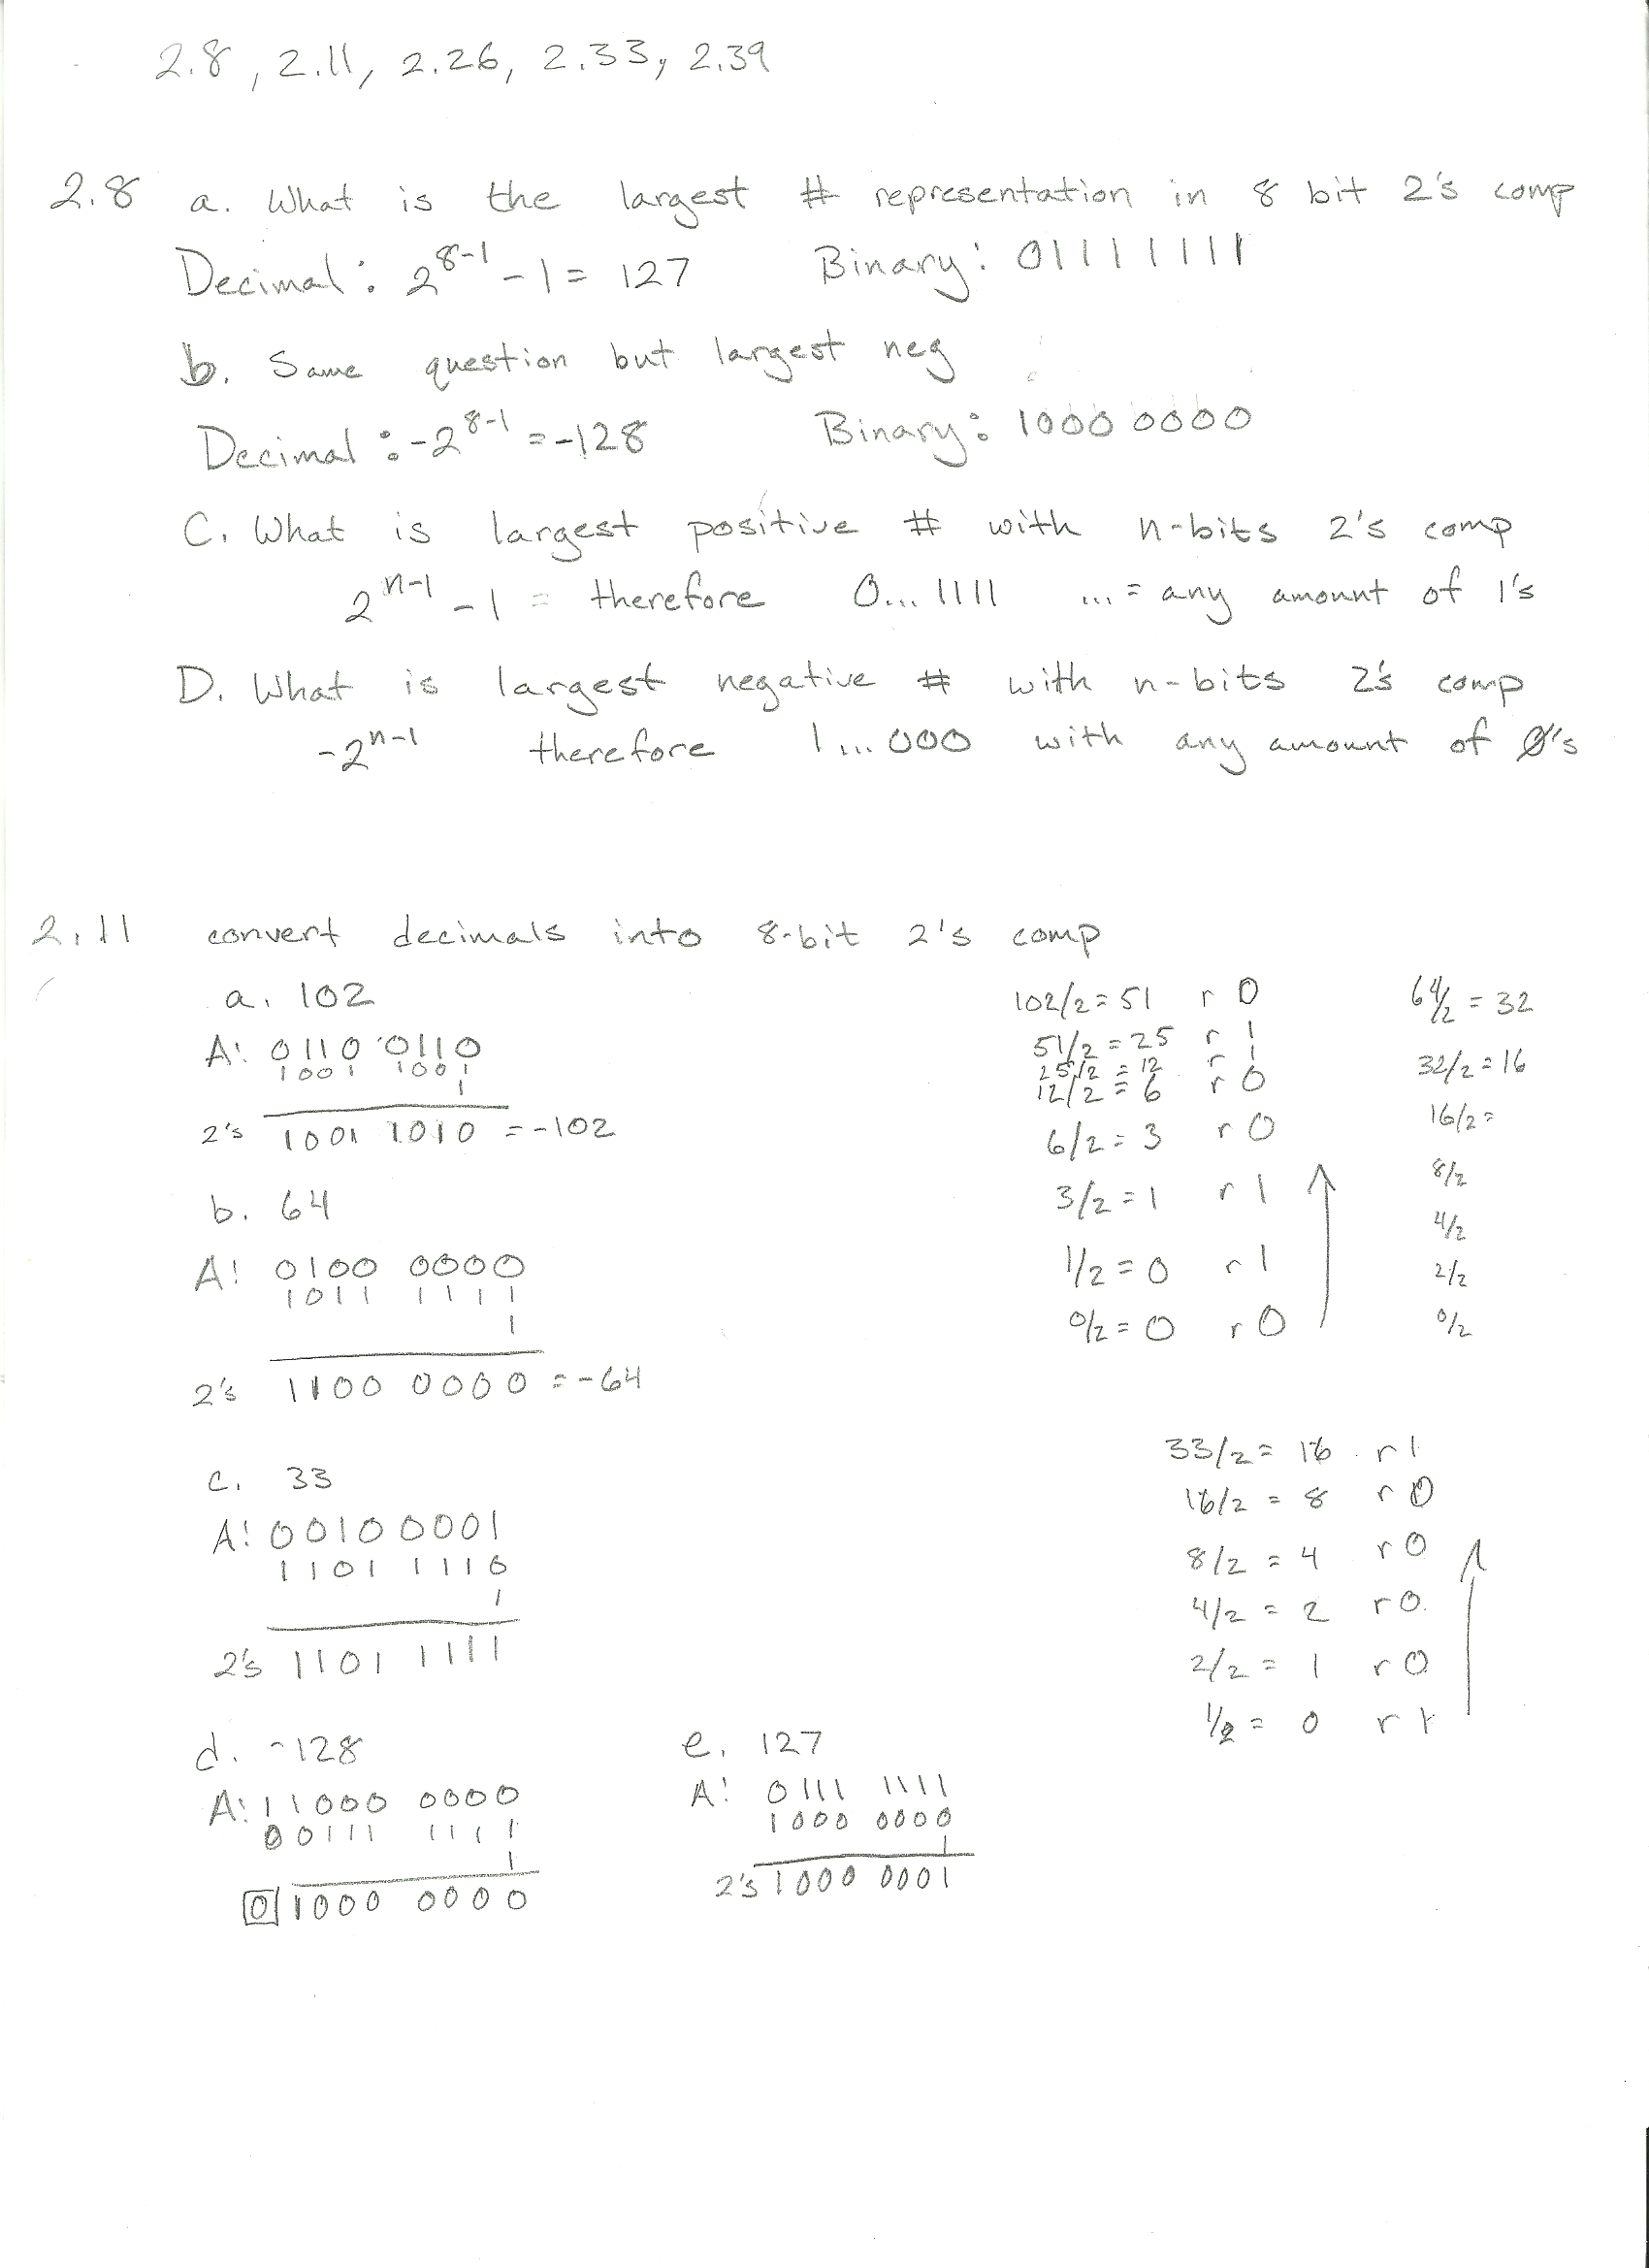 2.8, 2.11, 2.26, 2.33, 2.39
2.8 a. What is the largest # representation in 8 bit 2's comp
Decimal: 2^8-1 - 1 = 127 Binary: 01111111
b. Same question but largest neg
Decimal: -2^8-1 = -128 Binary: 1000 0000
C. What is largest positive # with n-bits 2's comp
2^n-1 - 1 = therefore 0...1111 ... = any amount of 1's
D. What is largest negative # with n-bits 2's comp
-2^n-1 therefore 1...000 with any amount of 0's
2.11 convert decimals into 8-bit 2's comp
a. 102
A: 0110 0110
1001 1001
1
2's 1001 1010 = -102
b. 64
A: 0100 0000
1011 1111
1
2's 1100 0000 = -64
c. 33
A: 00100001
1101 1110
1
2's 1101 1111
d. -128
A: 11000 0000
00111 1111
1
0 1000 0000
e. 127
A: 0111 1111
1000 0000
1
2's 1000 0001
102/2 = 51 r 0
51/2 = 25 r 1
25/2 = 12 r 1
12/2 = 6 r 0
6/2 = 3 r 0
3/2 = 1 r 1
1/2 = 0 r 1
0/2 = 0 r 0
64/2 = 32
32/2 = 16
16/2 =
8/2
4/2
2/2
0/2
33/2 = 16 r 1
16/2 = 8 r 0
8/2 = 4 r 0
4/2 = 2 r 0
2/2 = 1 r 0
1/2 = 0 r 1